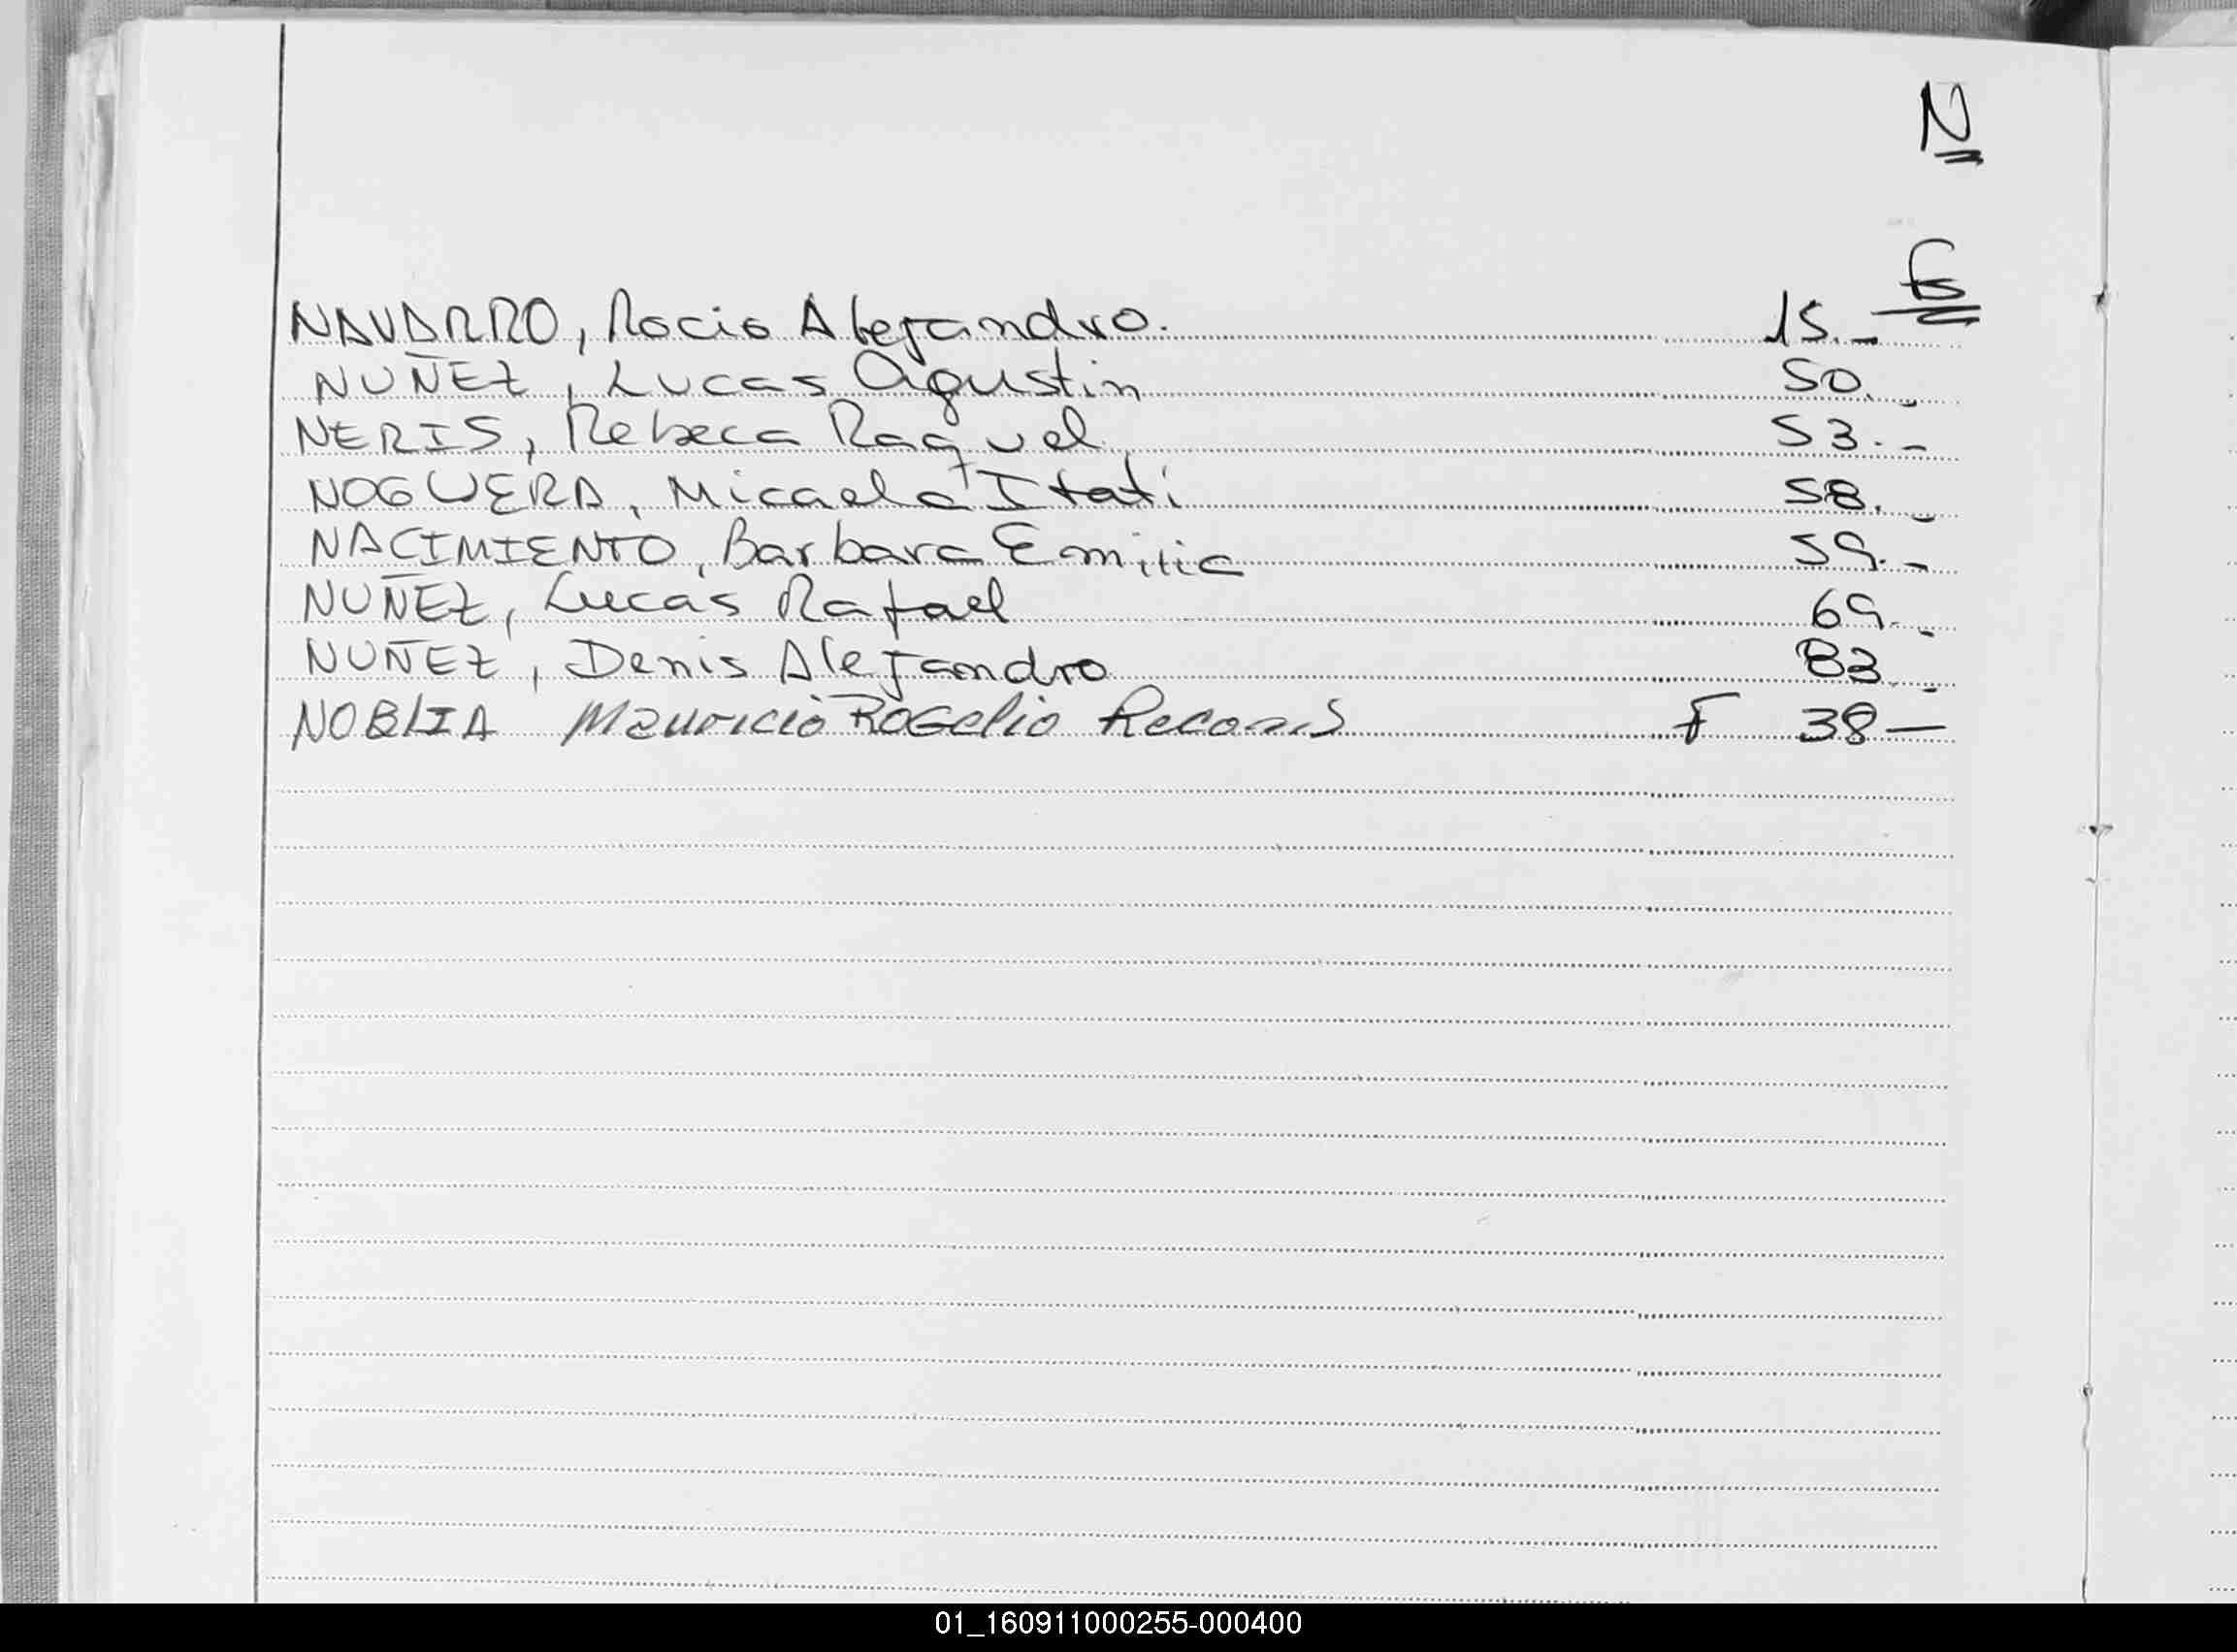 N
fs
NAVARRO, Rocio Alejandro. 15.-
NUÑEZ, Lucas Agustin 50.-
NERIS, Rebeca Raquel 53.-
NOGUERA, Micaela Itati 58.-
NACIMIENTO, Barbara Emilia 59.-
NUÑEZ, Lucas Rafael 69.-
NUÑEZ, Denis Alejandro 83.-
NOBLIA Mauricio ROGelio F 38-
01_160911000255-000400